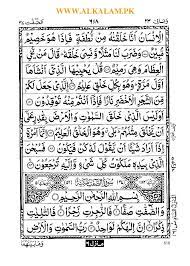 WWW.ALKALAM.PK
٦١٨
الْاِنْسَانُ اَنَّا خَلَقْنٰهُ مِنْ نُّطْفَةٍ فَاِذَا هُوَ خَصِیْمٌ
مُّبِیْنٌ وَضَرَبَ لَنَا مَثَلًا وَّنَسِیَ خَلْقَهٗ قَالَ مَنْ یُّحْیِ
الْعِظَامَ وَهِیَ رَمِیْمٌ قُلْ یُحْیِیْهَا الَّذِیْۤ اَنْشَاَهَاۤ
اَوَّلَ مَرَّةٍ وَهُوَ بِكُلِّ خَلْقٍ عَلِیْمُ الَّذِیْ جَعَلَ لَكُمْ
مِّنَ الشَّجَرِ الْاَخْضَرِ نَارًا فَاِذَاۤ اَنْتُمْ مِّنْهُ تُوْقِدُوْنَ
اَوَلَیْسَ الَّذِیْ خَلَقَ السَّمٰوٰتِ وَالْاَرْضَ بِقٰدِرٍ عَلٰۤی
اَنْ یَّخْلُقَ مِثْلَهُمْ بَلٰی وَهُوَ الْخَلّٰقُ الْعَلِیْمُ اِنَّمَاۤ
اَمْرُهٗۤ اِذَاۤ اَرَادَ شَیْـًٔا اَنْ یَّقُوْلَ لَهٗ كُنْ فَیَكُوْنُ فَسُبْحٰنَ
الَّذِیْ بِیَدِهٖ مَلَكُوْتُ كُلِّ شَیْءٍ وَّاِلَیْهِ تُرْجَعُوْنَ
بِسْمِ اللّٰهِ الرَّحْمٰنِ الرَّحِیْمِ
وَالصّٰٓفّٰتِ صَفًّا فَالزّٰجِرٰتِ زَجْرًا فَالتّٰلِیٰتِ
ذِكْرًا اِنَّ اِلٰهَكُمْ لَوَاحِدٌ رَبُّ السَّمٰوٰتِ وَالْاَرْضِ